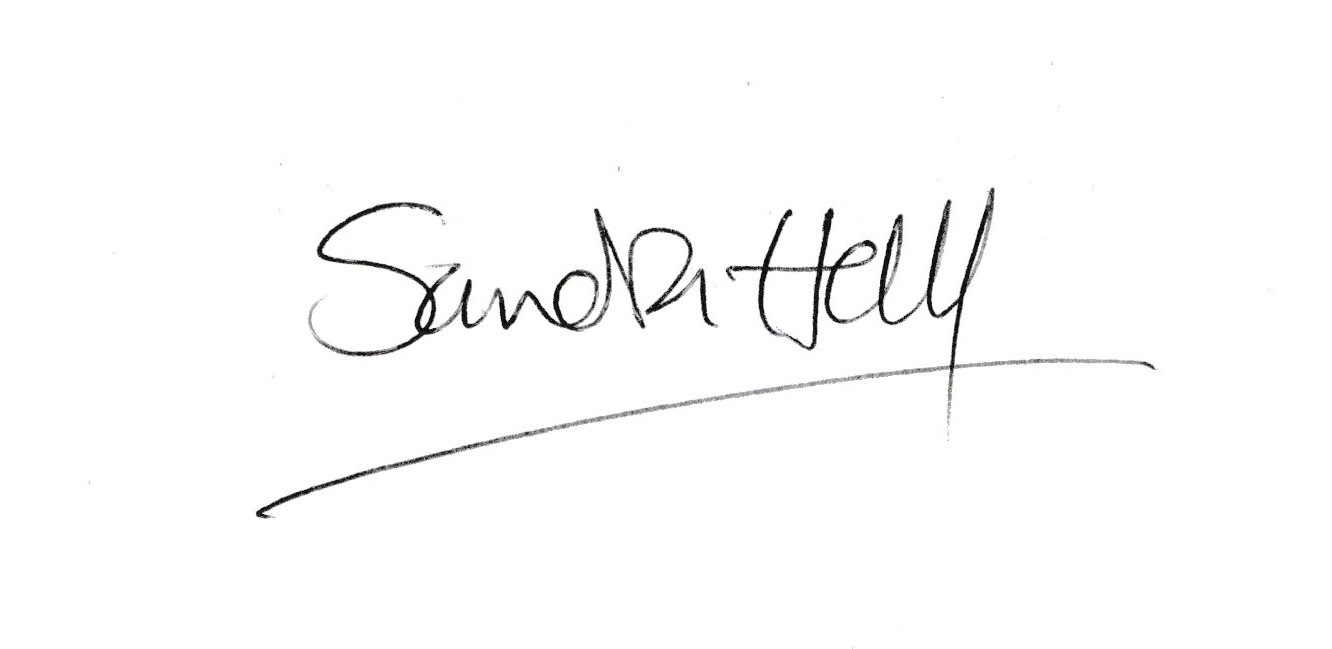 Sandra Helly